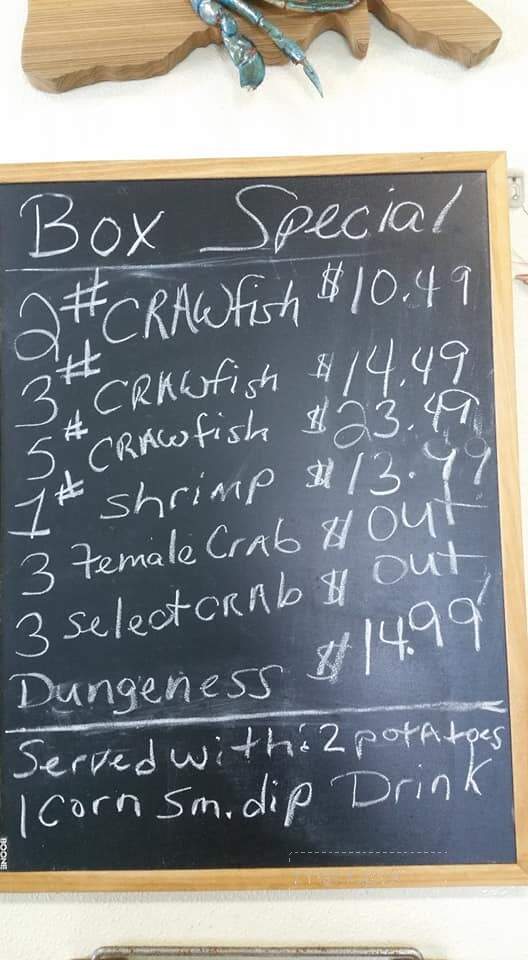 Box Special
2# CRAWfish $10.49
3# CRAWfish $14.49
5# CRAWfish $23.49
1# shrimp $13.99
3 Female CrAb $ Out
3 select CRAb $ out
Dungeness $14.99
Served with: 2 potAtoes
1 Corn Sm. dip Drink
BOONE